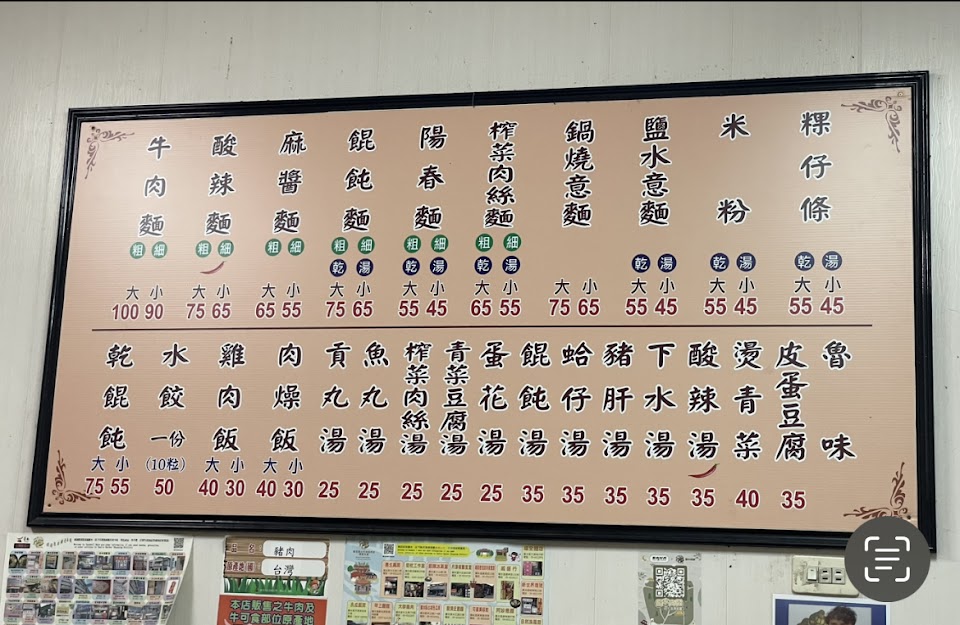 牛肉麵 粗 細 大 小 100 90
酸辣麵 粗 細 大 小 75 65
麻醬麵 粗 細 大 小 65 55
餛飩麵 粗 細 乾 湯 大 小 75 65
陽春麵 粗 細 乾 湯 大 小 55 45
榨菜肉絲麵 粗 細 乾 湯 大 小 65 55
鍋燒意麵 大 小 75 65
鹽水意麵 乾 湯 大 小 55 45
米粉 乾 湯 大 小 55 45
粿仔條 乾 湯 大 小 55 45
乾餛飩 大 小 75 55
水餃 一份 (10粒) 50
雞肉飯 大 小 40 30
肉燥飯 大 小 40 30
貢丸湯 25
魚丸湯 25
榨菜肉絲湯 25
青菜豆腐湯 25
蛋花湯 25
餛飩湯 35
蛤仔湯 35
豬肝湯 35
下水湯 35
酸辣湯 35
燙青菜 40
皮蛋豆腐 35
魯味
品名 豬肉
原產地(國) 台灣
本店販售之牛肉及
牛可食部位原產地